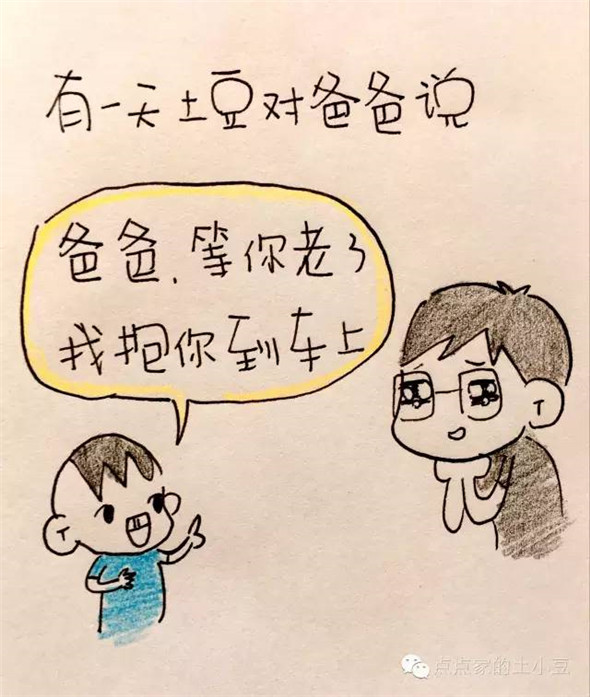 有一天土豆对爸爸说
爸爸,等你老了
我抱你到车上
点点家的土小豆